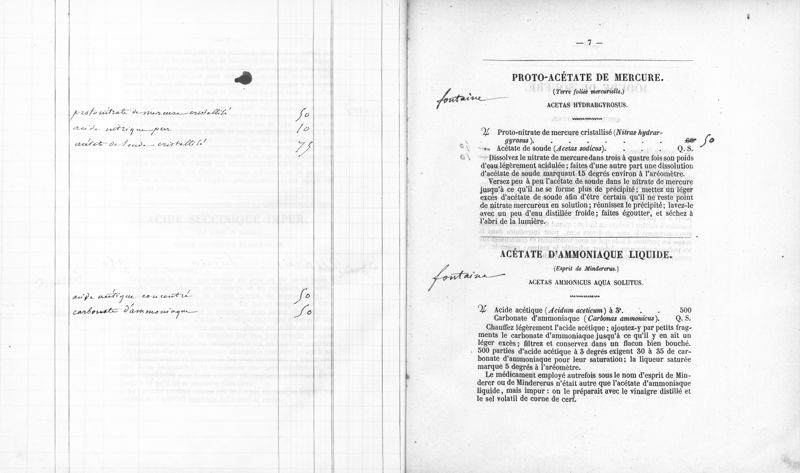 protonitrate de mercure cristallisé 50
acide nitrique pur 10
acétat de soude cristallisé 75
acide acétique concentré 50
carbonate d'ammoniaque 50
— 7 —
PROTO-ACÉTATE DE MERCURE.
(Terre foliée mercurielle.)
fontaine
ACETAS HYDRARGYROSUS.
Proto-nitrate de mercure cristallisé (Nitras hydrar-
gyrosus). . . . . . 50
Acétate de soude (Acetas sodicus). . . . . Q. S.
Dissolvez le nitrate de mercure dans trois à quatre fois son poids
d'eau légèrement acidulée; faites d'une autre part une dissolution
d'acétate de soude marquant 15 degrés environ à l'aréomètre.
Versez peu à peu l'acétate de soude dans le nitrate de mercure
jusqu'à ce qu'il ne se forme plus de précipité; mettez un léger
excès d'acétate de soude afin d'être certain qu'il ne reste point
de nitrate mercureux en solution; réunissez le précipité; lavez-le
avec un peu d'eau distillée froide; faites égoutter, et séchez à
l'abri de la lumière.
ACÉTATE D'AMMONIAQUE LIQUIDE.
(Esprit de Mindererus.)
fontaine
ACETAS AMMONICUS AQUA SOLUTUS.
Acide acétique (Acidum aceticum) à 3°. . . 500
Carbonate d'ammoniaque (Carbonas ammonicus). Q. S.
Chauffez légèrement l'acide acétique; ajoutez-y par petits frag-
ments le carbonate d'ammoniaque jusqu'à ce qu'il y en ait un
léger excès; filtrez et conservez dans un flacon bien bouché.
500 parties d'acide acétique à 3 degrés exigent 30 à 35 de car-
bonate d'ammoniaque pour leur saturation; la liqueur saturée
marque 5 degrés à l'aréomètre.
Le médicament employé autrefois sous le nom d'esprit de Min-
derer ou de Mindererus n'était autre que l'acétate d'ammoniaque
liquide, mais impur: on le préparait avec le vinaigre distillé et
le sel volatil de corne de cerf.